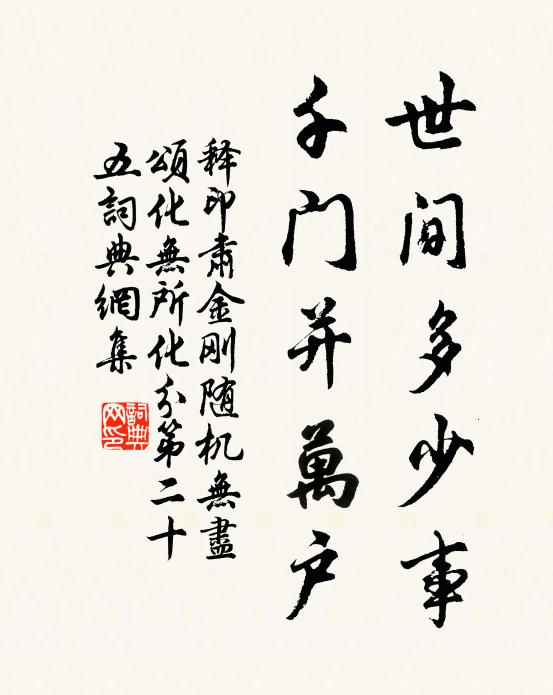 世间多少事
千门并萬户
释印肃金刚随机無盡
頌化無所化分第二十
五詞典網集
詞典网印